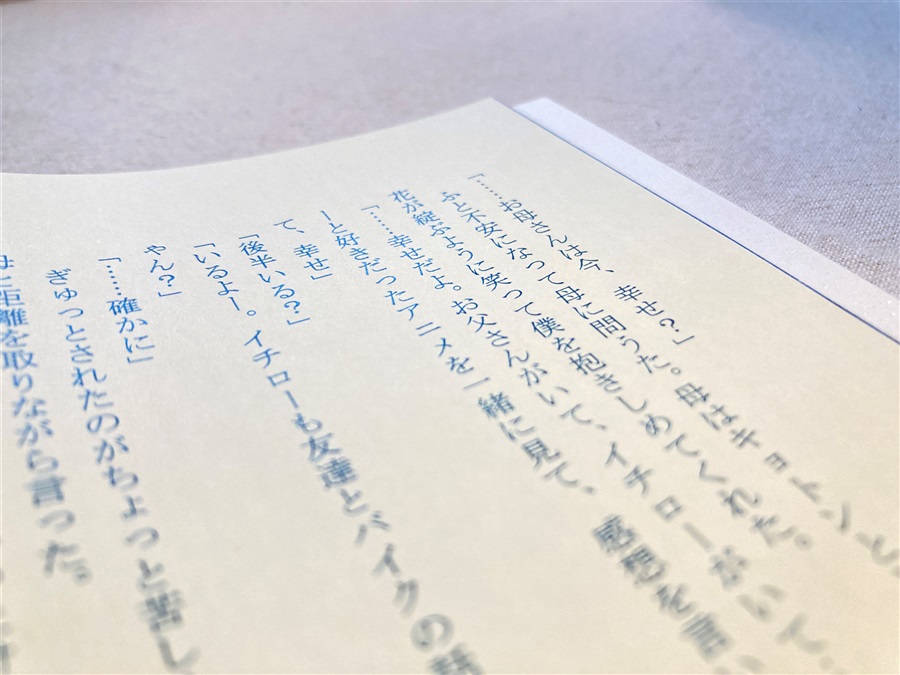 「……お母さんは今、幸せ?」
ふと不安になって母に問うた。母はキョトンと、
花が綻ぶように笑って僕を抱きしめてくれた。
「……幸せだよ。お父さんがいて、イチローがいて、
ーと好きだったアニメを一緒に見て、感想を言い
て、幸せ」
「後半いる?」
「いるよー。イチローも友達とバイクの話
やん?」
「……確かに」
ぎゅっとされたのがちょっと苦し
母に距離を取りながら言った。